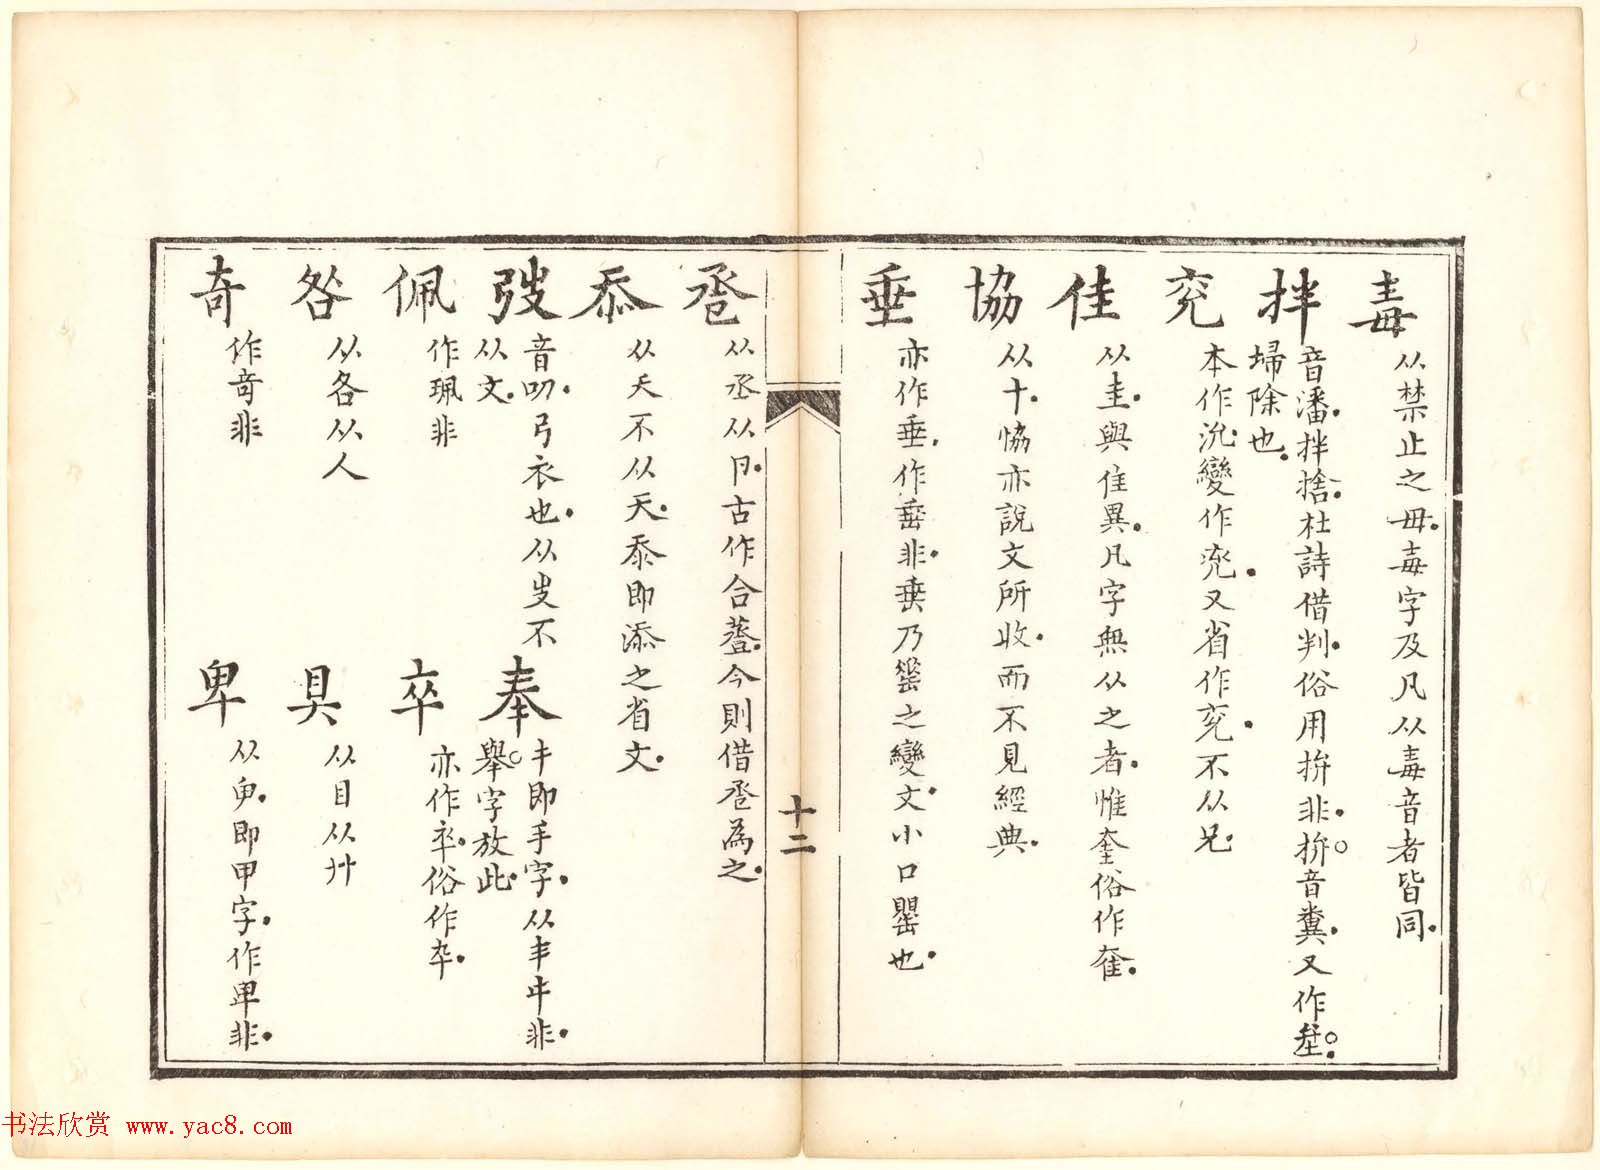 毒 从禁止之毋毒字及凡从毒音者皆同
拌 音潘拌捨杜詩借判俗用拚非拚音糞又作坌
埽除也
兖 本作沇變作兗又省作兖不从兄
佳 从圭與隹異凡字無从之者惟奎俗作奞
協 从十恊亦說文所收而不見經典
垂 亦作垂作埀非乗乃罃之變文小口罌也
巹 从丞从卪古作合蓋今則借巹為之
忝 从天不从夭忝即添之省文
弢 音叨弓衣也从㞢不
从文
奉 丰即手字从丰㐄非
舉字放此
佩 作珮非
卒 亦作卒俗作卆
咎 从各从人
具 从目从廾
奇 作竒非
卑 从甶即甲字作卑非
十二
书法欣赏 www.yac8.com